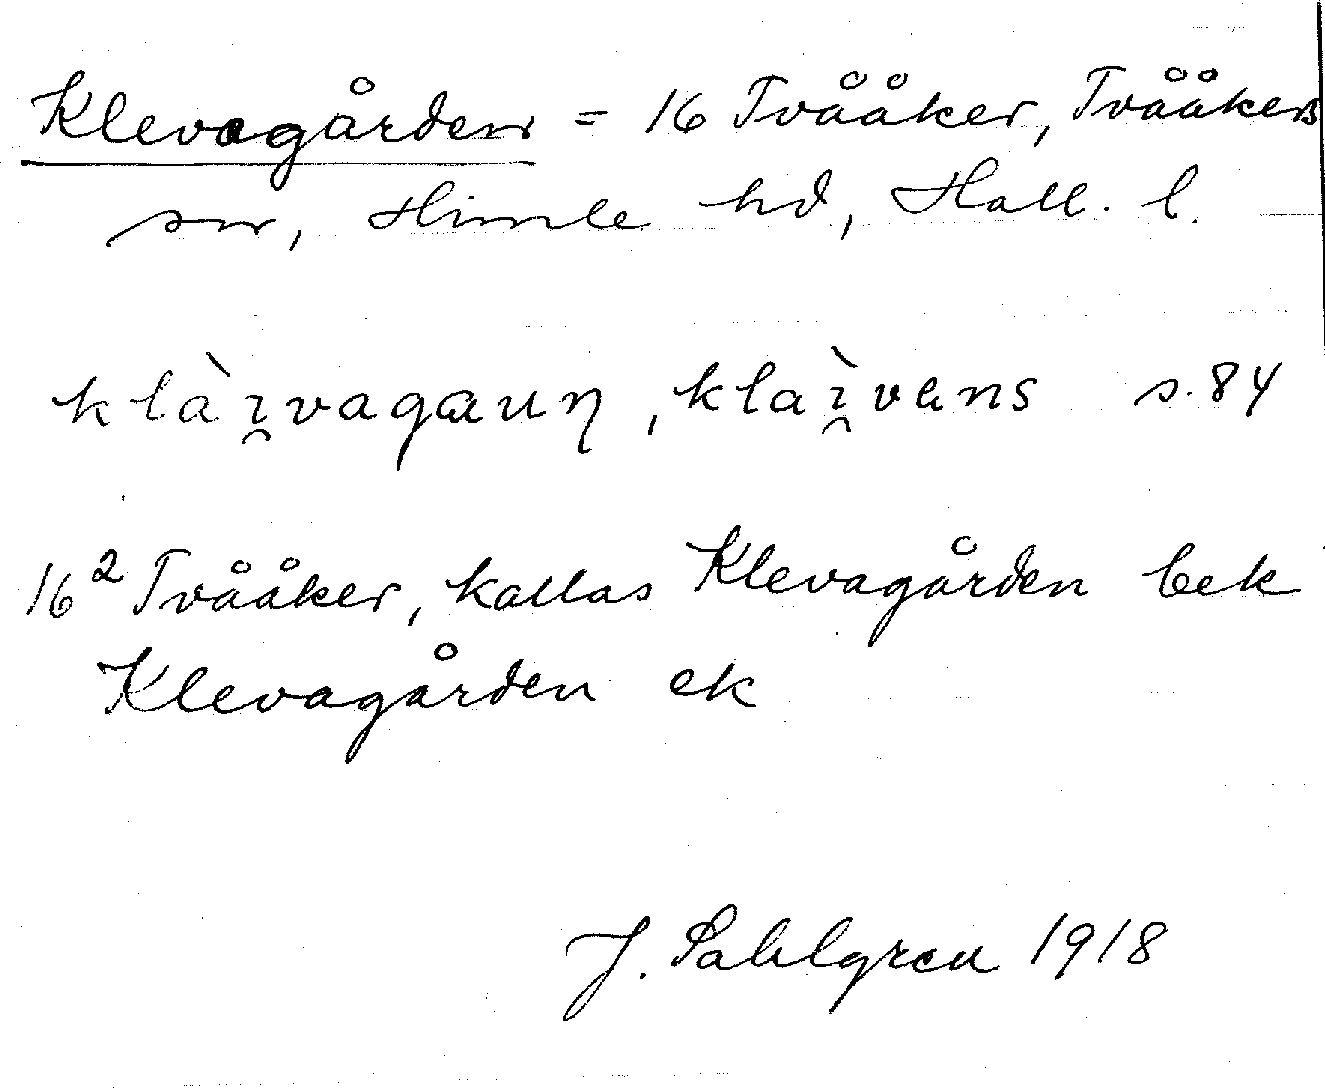 Klevagården = 16 Tvååker, Tvååkers
sn, Himle hd, Hall. l.
klàı̯vagaun̥, klaı̯̀vans s. 84
16² Tvååker, kallas Klevagården bek
Klevagården ek
J. Sahlgren 1918